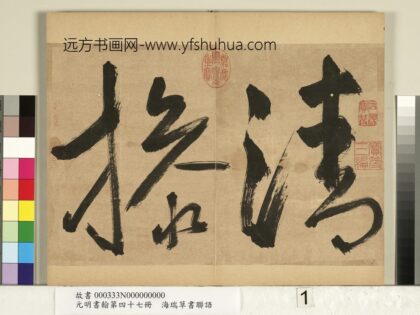 远方书画网-www.yfshuhua.com
清操
故書 000333N000000000
元明書翰第四十七冊 海瑞草書聯語
1